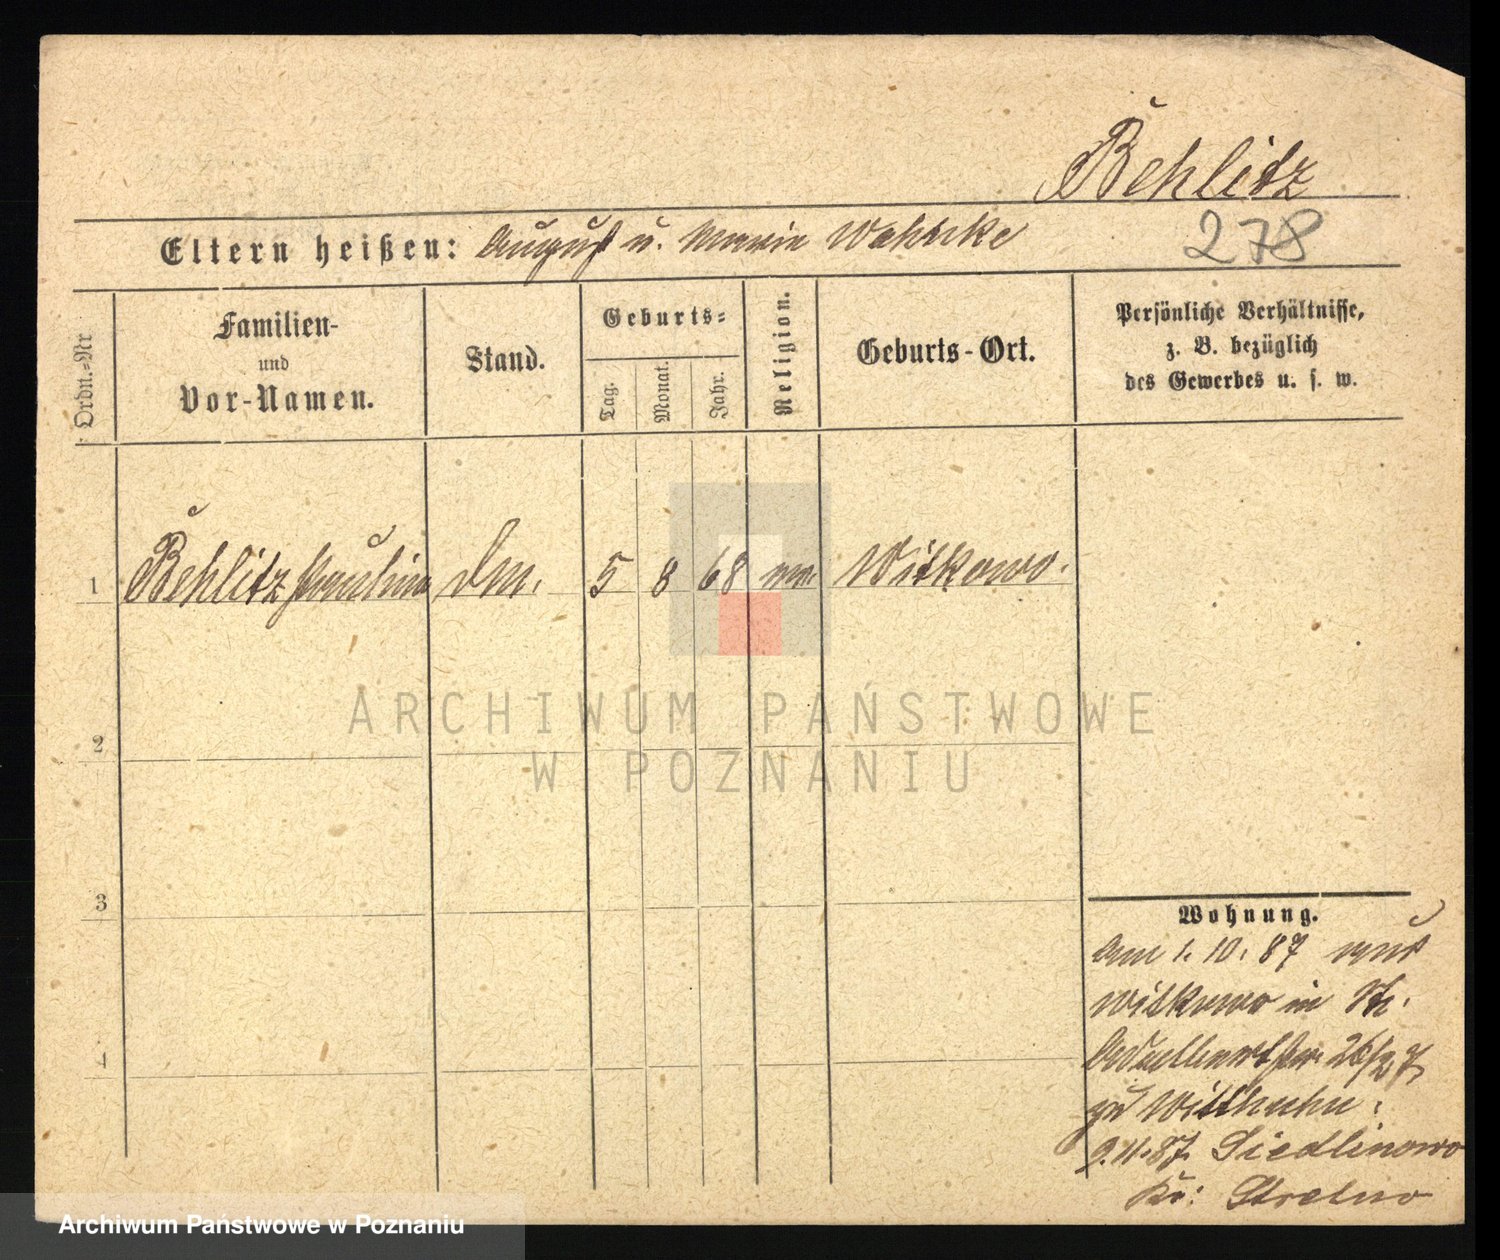 Behlitz
278
Eltern heißen: August u. Marie Wohlske
Ordn.-Nr
Familien-
und
Vor-Namen.
Stand.
Geburts-
Tag.
Monat.
Jahr.
Religion.
Geburts-Ort.
Persönliche Verhältnisse,
z. B. bezüglich
des Gewerbes u. s. w.
1 Behlitz Pauline 5 8 68 Witkowo.
2
3
4
Wohnung.
Am 1. 10. 87 aus
Witkowo in St.
26/27
zu Witthuhn.
9.11.87. Siedlinowo
Kr: Strelno
ARCHIWUM PAŃSTWOWE
W POZNANIU
Archiwum Państwowe w Poznaniu